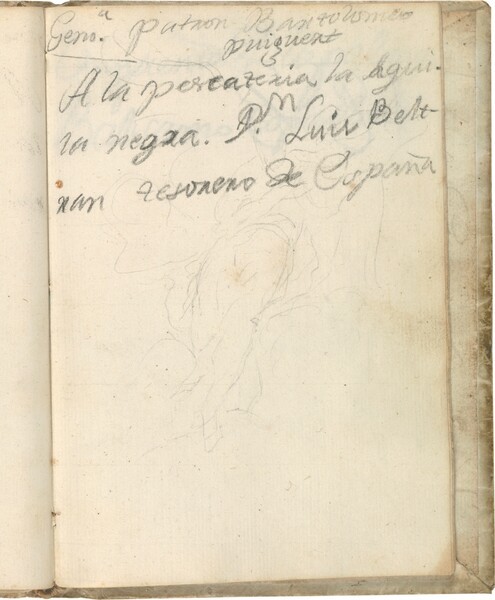 Geno.ᵃ patron Bartolomeo
puiguert
A la pescateria la Agui-
la negra. D.ⁿ Luis Belt-
ran tesorero de España